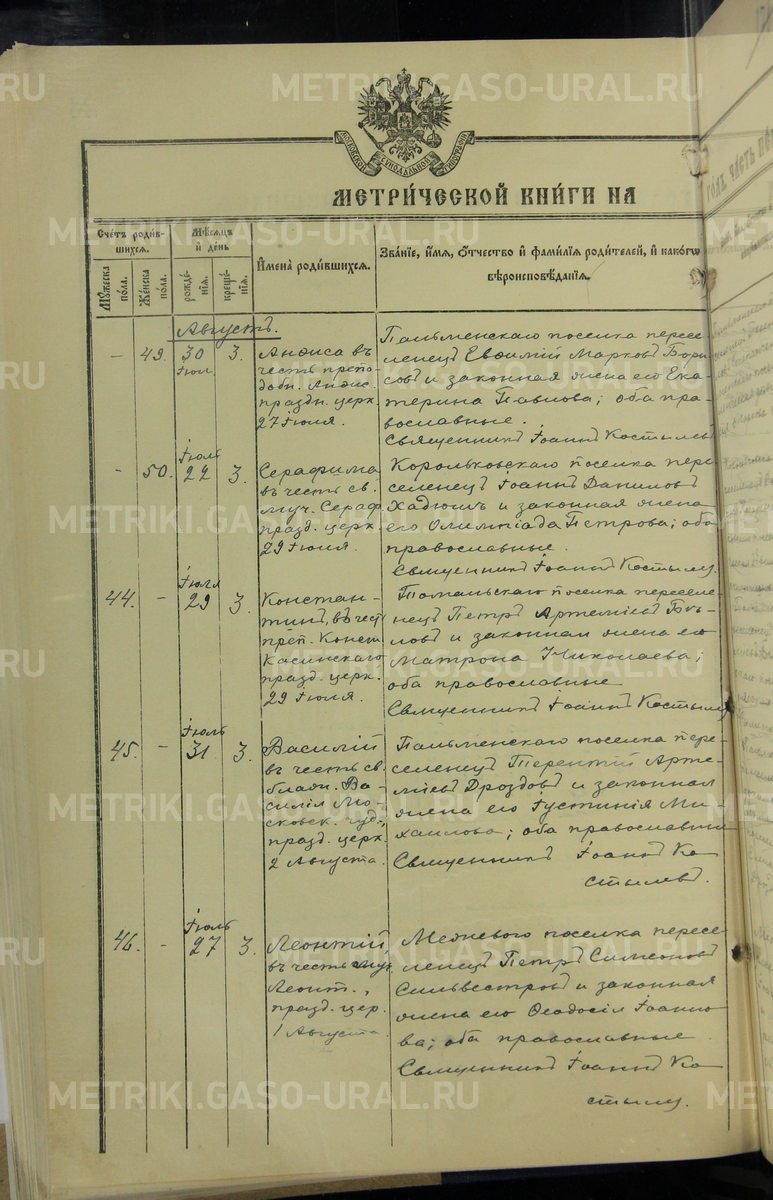 METRIKI.GASO-URAL.RU
МОСКОВСКОЙ СѴНОДАЛЬНОЙ ТИПОГРАФІИ
МЕТРИ́ЧЕСКОЙ КНИ́ГИ НА
Сче́тъ роди́в-
шихся.
Мꙋжеска по́ла.
Же́нска по́ла.
Мѣсяцъ и҆ де́нь
рожде́нїѧ.
креще́нїѧ.
И҆мена̀ роди́вшихся.
Зва́нїе, и҆́мѧ, ѻ҆́тчество и҆ фами́лїѧ роди́телей, и҆ како́гѡ
вѣроисповѣ́данїѧ.
Августъ.
- 49. 30 Іюл. 3.
Анѳиса въ
честь препо-
добн. Анѳис.
праздн. церк.
27 Іюля.
поселка пересе-
ленецъ Евѳимій Марковъ Бори-
совъ и законная жена его Ека-
терина Павлова; оба пра-
вославные.
Священникъ Іоаннъ Костылевъ
- 50. Іюль 22 3.
Серафима
въ честь св.
муч. Сераф.
празд. церк.
29 Іюля.
Корольковскаго поселка пере-
селенецъ Іоаннъ Даниловъ
и законная жена
его Олимпіада Петрова; оба
православные.
Священникъ Іоаннъ Костылевъ.
44. - Іюля 29 3.
Констан-
тинъ, въ чест
преп. Конст.
Касинскаго
празд. церк.
29 Іюля.
поселка переселе-
нецъ Петръ Артеміевъ Бы-
ловъ и законная жена его
Матрона Николаева;
оба православные
Священникъ Іоаннъ Костылевъ
45. - Іюль 31 3.
Василій
въ честь св.
блаж. Ва-
силія Мо-
сковск. чуд.,
празд. церк.
2 Августа.
поселка пере-
селенецъ Терентій Арте-
міевъ Дроздовъ и законная
жена его Іустинія Ми-
хаилова; оба православные
Священникъ Іоаннъ Ко-
стылевъ.
46. - Іюль 27 3.
Леонтій,
въ честь муч.
Леонт.,
празд. цер.
1 Августа.
поселка пересе-
ленецъ Петръ Симеоновъ
Сильвестровъ и законная
жена его Ѳеодосія Іоанно-
ва; оба православные.
Священникъ Іоаннъ Ко-
стылевъ.